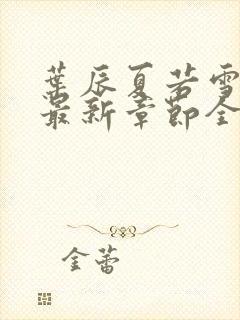 葉辰夏若雪
最新章節全
金蕾